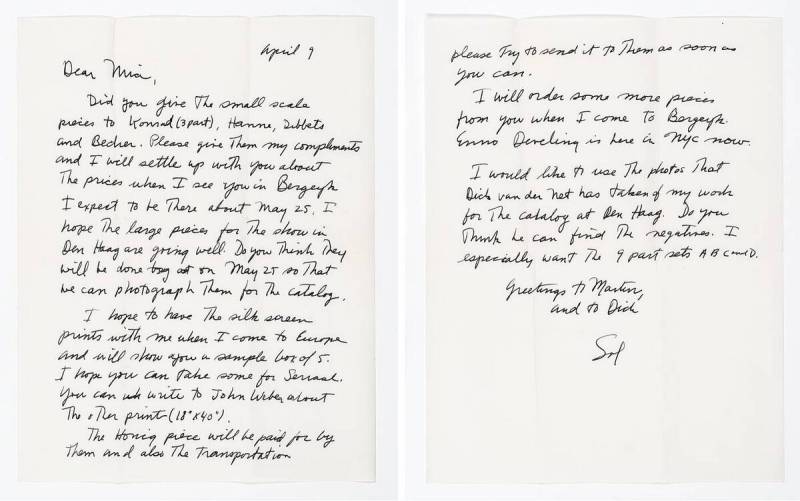 April 9
Dear Mia,
Did you give The small scale
pieces to Konrad (3 part), Hanne, Dibbets
and Becher. Please give Them my compliments
and I will settle up with you about
The prices when I see you in Bergeyk
I expect to be There about May 25. I
hope The large pieces for The show in
Den Haag are going well. Do you Think They
will be done on May 25 so That
we can photograph Them for The catalog.
I hope to have The silk screen
prints with me when I come to Europe
and will show you a sample box of 5.
I hope you can Take some for Seriaal.
You can write to John Weber about
The oTher print (18"x40").
The Honig piece will be paid for by
Them and also The Transportation
please Try to send it to Them as soon as
you can.
I will order some more pieces
from you when I come To Bergeyk.
Enno Develing is here in NYC now.
I would like to use The photos That
Dick van der Net has Taken of my work
for The catalog at Den Haag. Do you
Think he can find The negatives. I
especially want The 9 part sets A B C and D.
Greetings to Martin,
and to Dick
Sol